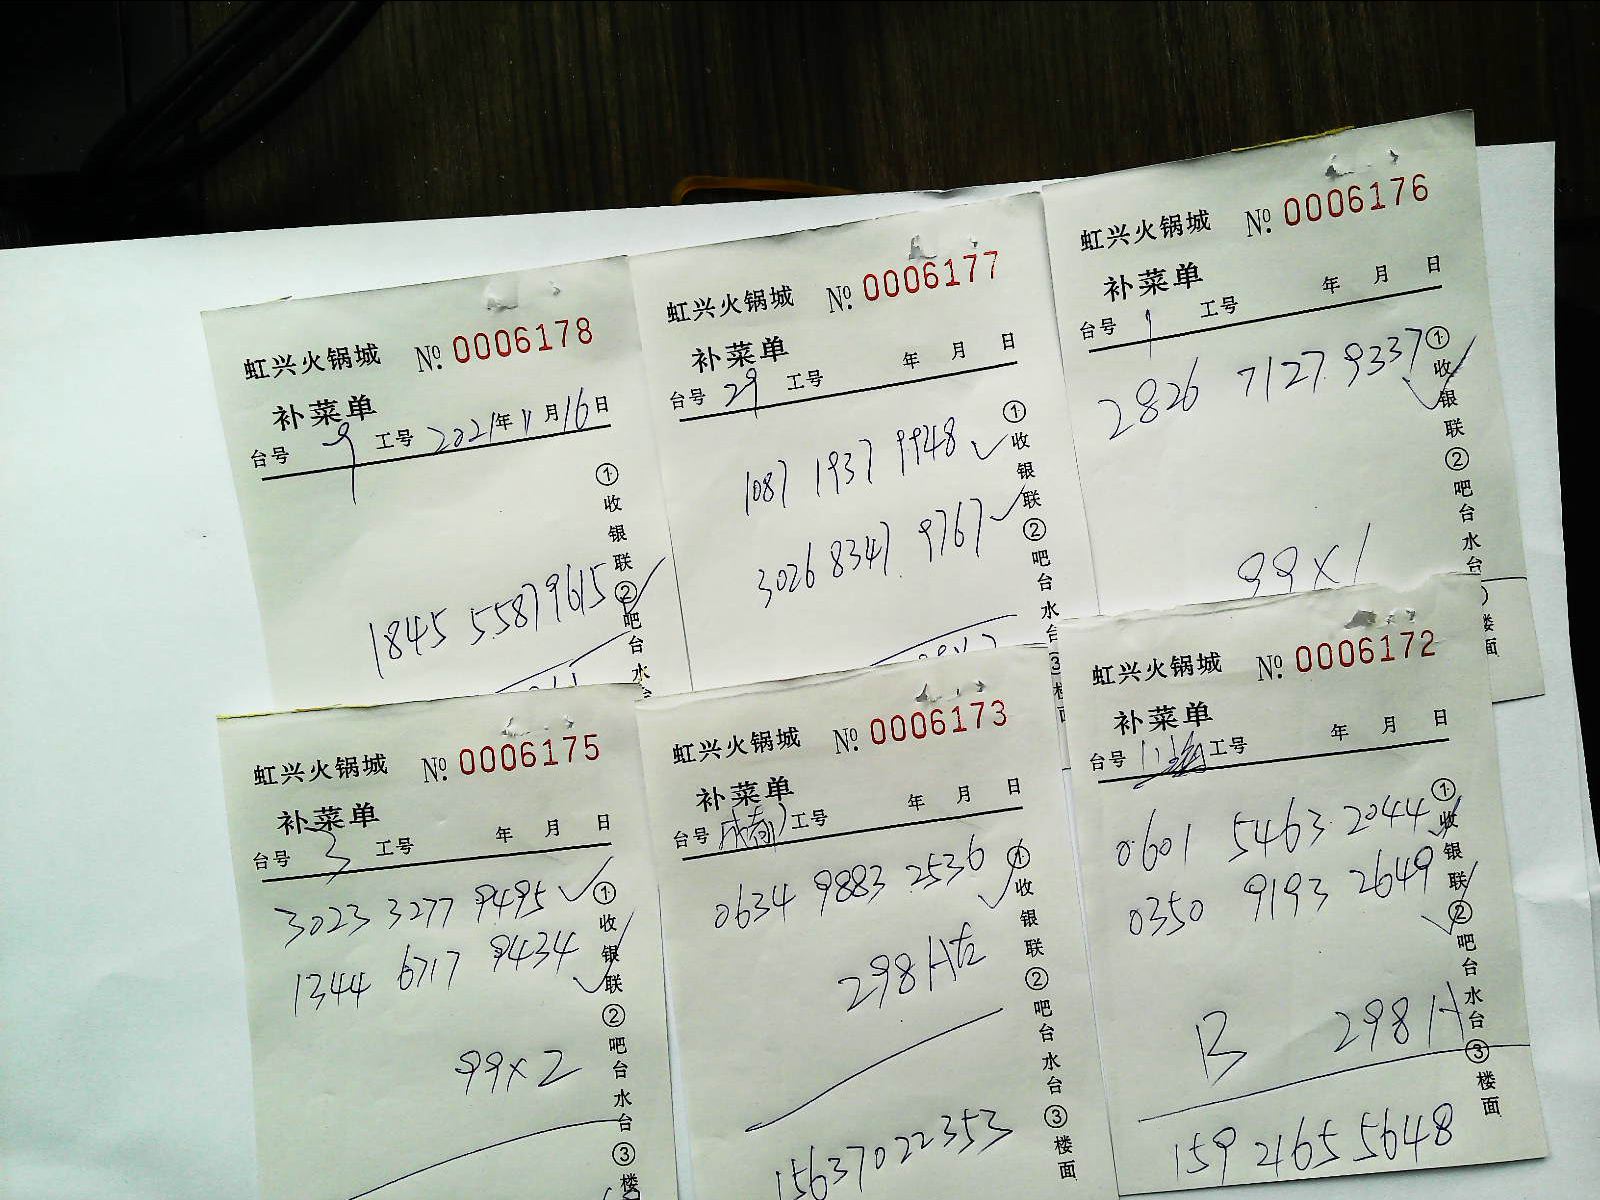 虹兴火锅城 No. 0006178
补菜单
台号 9 工号 2021年11月16日
1845 5587 9615
①收银联②吧台水台
虹兴火锅城 No. 0006177
补菜单
台号 29 工号 年 月 日
1087 1937 9948
3026 8347 9767
①收银联②吧台水台③楼面
虹兴火锅城 No. 0006176
补菜单
台号 1 工号 年 月 日
2826 7127 9337
99×1
①收银联②吧台水台③楼面
虹兴火锅城 No. 0006175
补菜单
台号 3 工号 年 月 日
3023 3277 9495
1344 6717 9434
99×2
①收银联②吧台水台③楼
虹兴火锅城 No. 0006173
补菜单
台号 成都 工号 年 月 日
0634 9883 2536
298
15637022353
①收银联②吧台水台③楼面
虹兴火锅城 No. 0006172
补菜单
台号 工号 年 月 日
0601 5463 2044
0350 9193 2649
B 298
159 2165 5648
①收银联②吧台水台③楼面